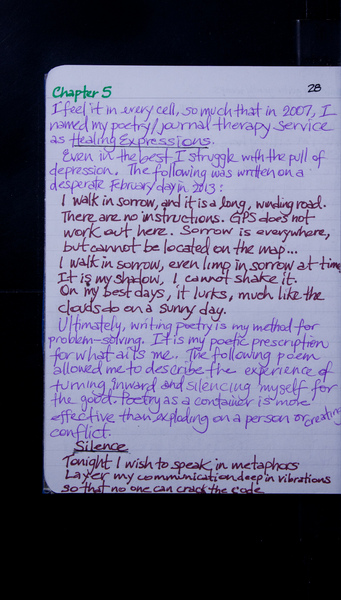 28
Chapter 5
I feel it in every cell, so much that in 2007, I
named my poetry/journal therapy service
as Healing Expressions.
Even in the best I struggle with the pull of
depression. The following was written on a
desperate February day in 2013:
I walk in sorrow, and it is a long, winding road.
There are no instructions. GPS does not
work out here. Sorrow is everywhere,
but cannot be located on the map...
I walk in sorrow, even limp in sorrow at time
It is my shadow, I cannot shake it.
On my best days, it lurks, much like the
clouds do on a sunny day.
Ultimately, writing poetry is my method for
problem-solving. It is my poetic prescription
for what ails me. The following poem
allowed me to describe the experience of
turning inward and silencing myself for
the good. Poetry as a container is more
effective than exploding on a person or creating
conflict.
Silence
Tonight I wish to speak in metaphors
Layer my communication deep in vibrations
so that no one can crack the code